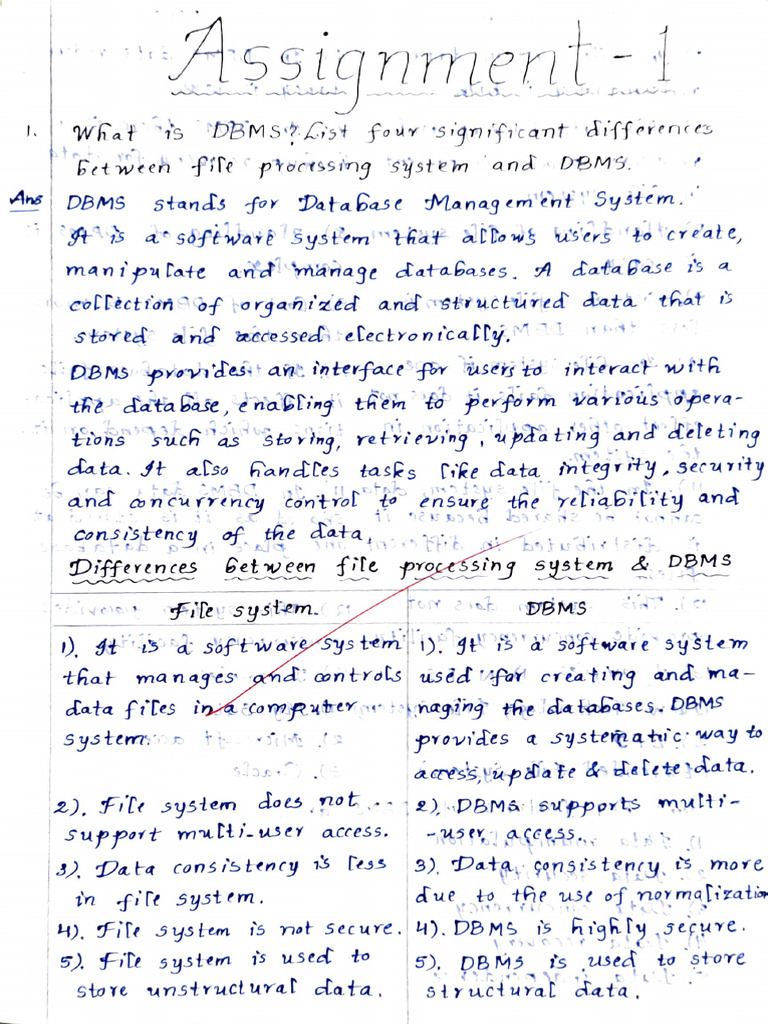 Assignment - 1
1. What is DBMS? List four significant differences
between file processing system and DBMS.
Ans DBMS stands for Database Management System.
It is a software system that allows users to create,
manipulate and manage databases. A database is a
collection of organized and structured data that is
stored and accessed electronically.
DBMS provides an interface for users to interact with
the database, enabling them to perform various opera-
tions such as storing, retrieving, updating and deleting
data. It also handles tasks like data integrity, security
and concurrency control to ensure the reliability and
consistency of the data.
Differences between file processing system & DBMS
File system.
1). It is a software system
that manages and controls
data files in a computer
system.
2). File system does not
support multi-user access.
3). Data consistency is less
in file system.
4). File system is not secure.
5). File system is used to
store unstructural data.
DBMS
1). It is a software system
used for creating and ma-
naging the databases. DBMS
provides a systematic way to
access, update & delete data.
2). DBMS supports multi-
-user access.
3). Data consistency is more
due to the use of normalization
4). DBMS is highly secure.
5). DBMS is used to store
structural data.